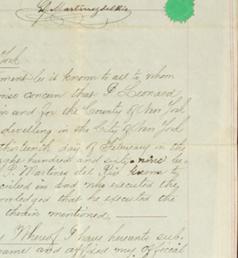 P. Martinez del Rio
York
it is known to all to whom
concern that I Leonard
in and for the County of New York
dwelling in the City of New York
thirteenth day of February in the
hundred and sixty-nine be-
P. Martinez del Rio known to
in and my executed the
that he executed the
therein mentioned,
Whereof I have hereunto sub-
name and affixed my official